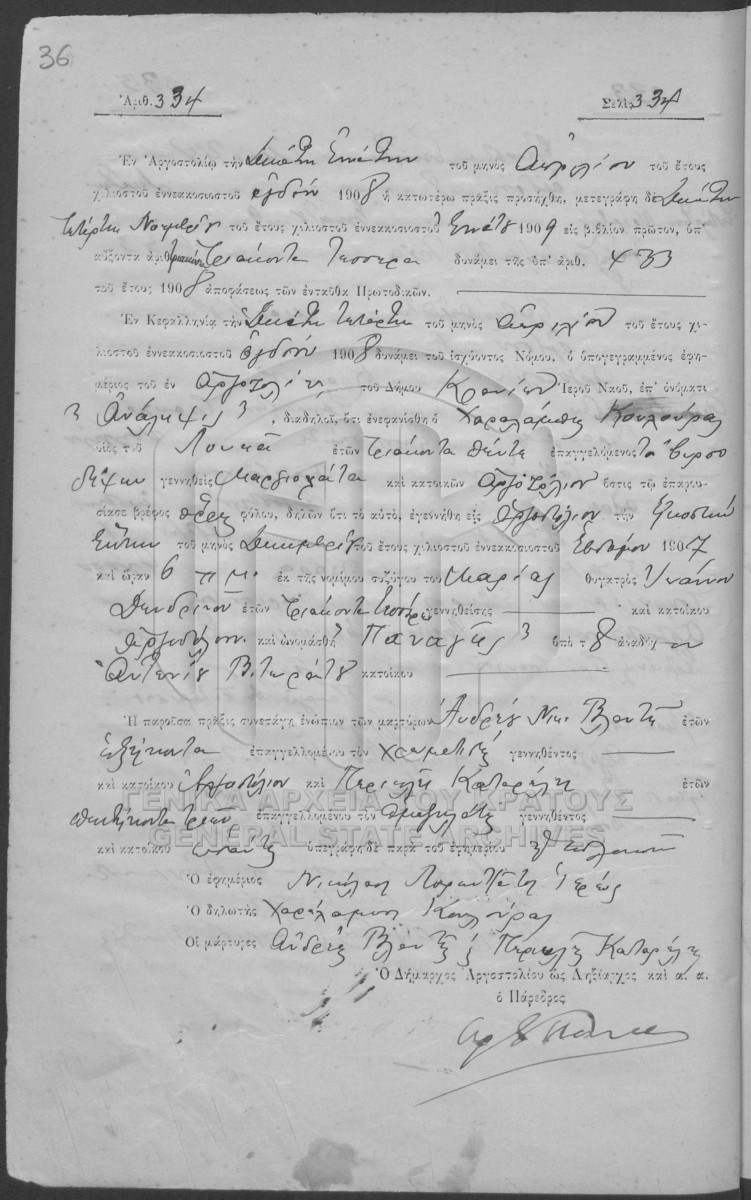 36
Ἀριθ. 334
Σελὶς 334
Ἐν Ἀργοστολίῳ τὴν δεκάτην ἐννάτην τοῦ μηνὸς Ἀπριλίου τοῦ ἔτους
χιλιοστοῦ ἐννεακοσιοστοῦ ὀγδόου 1908 ἡ κατωτέρω πρᾶξις προσήχθη, μετεγράφη δὲ δεκάτην
τετάρτην Νοεμβρίου τοῦ ἔτους χιλιοστοῦ ἐννεακοσιοστοῦ ἐννάτου 1909 εἰς βιβλίον πρῶτον, ὑπ'
αὔξοντα ἀριθ. τριακόσια τριάκοντα τέσσερα δυνάμει τῆς ὑπ' ἀριθ. 433
τοῦ ἔτους 1908 ἀποφάσεως τῶν ἐνταῦθα Πρωτοδικῶν.
Ἐν Κεφαλληνίᾳ τὴν δεκάτην τετάρτην τοῦ μηνὸς Ἀπριλίου τοῦ ἔτους χι-
λιοστοῦ ἐννεακοσιοστοῦ ὀγδόου 1908 δυνάμει τοῦ ἰσχύοντος Νόμου, ὁ ὑπογεγραμμένος ἐφη-
μέριος τοῦ ἐν Ἀργοστολίῳ τοῦ Δήμου Κρανίων Ἱεροῦ Ναοῦ, ἐπ' ὀνόματι
Ἀνάληψις, διαδηλοῖ, ὅτι ἐνεφανίσθη ὁ Χαράλαμπος Κουλούρας
υἱὸς τοῦ Λουκᾶ ἐτῶν τριάκοντα πέντε ἐπαγγελόμενος τὸν βυρσο
δέψην γεννηθεὶς καὶ κατοικῶν Ἀργοστόλιον ὅστις τῷ ἐπαρου-
σίασε βρέφος ἄρρεν φύλου, δηλῶν ὅτι τὸ αὐτὸ, ἐγεννήθη εἰς Ἀργοστόλιον τὴν εἰκοστὴν
ἕκτην τοῦ μηνὸς Δεκεμβρίου τοῦ ἔτους χιλιοστοῦ ἐννεακοσιοστοῦ ἑβδόμου 1907
καὶ ὥραν 6 π.μ. ἐκ τῆς νομίμου συζύγου του Μαρίας θυγατρὸς Ἰωάννου
Δενδρινοῦ ἐτῶν τριάκοντα τεσσάρων γεννηθείσης καὶ κατοίκου
Ἀργοστόλιον καὶ ὠνομάσθη Παναγῆς ὑπὸ τοῦ ἀναδόχου
Ἀντωνίου κατοίκου
Ἡ παροῦσα πρᾶξις συνετάγη ἐνώπιον τῶν μαρτύρων Ἀνδρέου Νικ. Βλαντῆ ἐτῶν
ἑξήκοντα ἐπαγγελλομένου τὸν γεννηθέντος
καὶ κατοίκου Ἀργοστόλιον καὶ Περικλῆ Καταρέλη ἐτῶν
πεντήκοντα τριῶν ἐπαγγελλομένου τὸν ἁμαξηλάτην γεννηθέντος
καὶ κατοίκου ὑπεγράφη δὲ παρὰ τοῦ ἐφημερίου
Ὁ ἐφημέριος Νικόλαος Ἱερεύς
Ὁ δηλωτὴς Χαράλαμπος Κουλούρας
Οἱ μάρτυρες Ἀνδρέας Βλαντῆς Περικλῆς Καταρέλης
Ὁ Δήμαρχος Ἀργοστολίου ὡς Ληξίαρχος καὶ α. α.
ὁ Πάρεδρος
ΓΕΝΙΚΑ ΑΡΧΕΙΑ ΤΟΥ ΚΡΑΤΟΥΣ
GENERAL STATE ARCHIVES